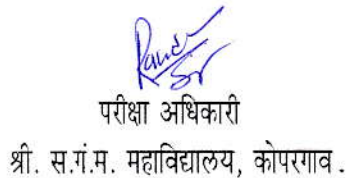 परीक्षा अधिकारी
श्री. स.गं.म. महाविद्यालय, कोपरगाव.